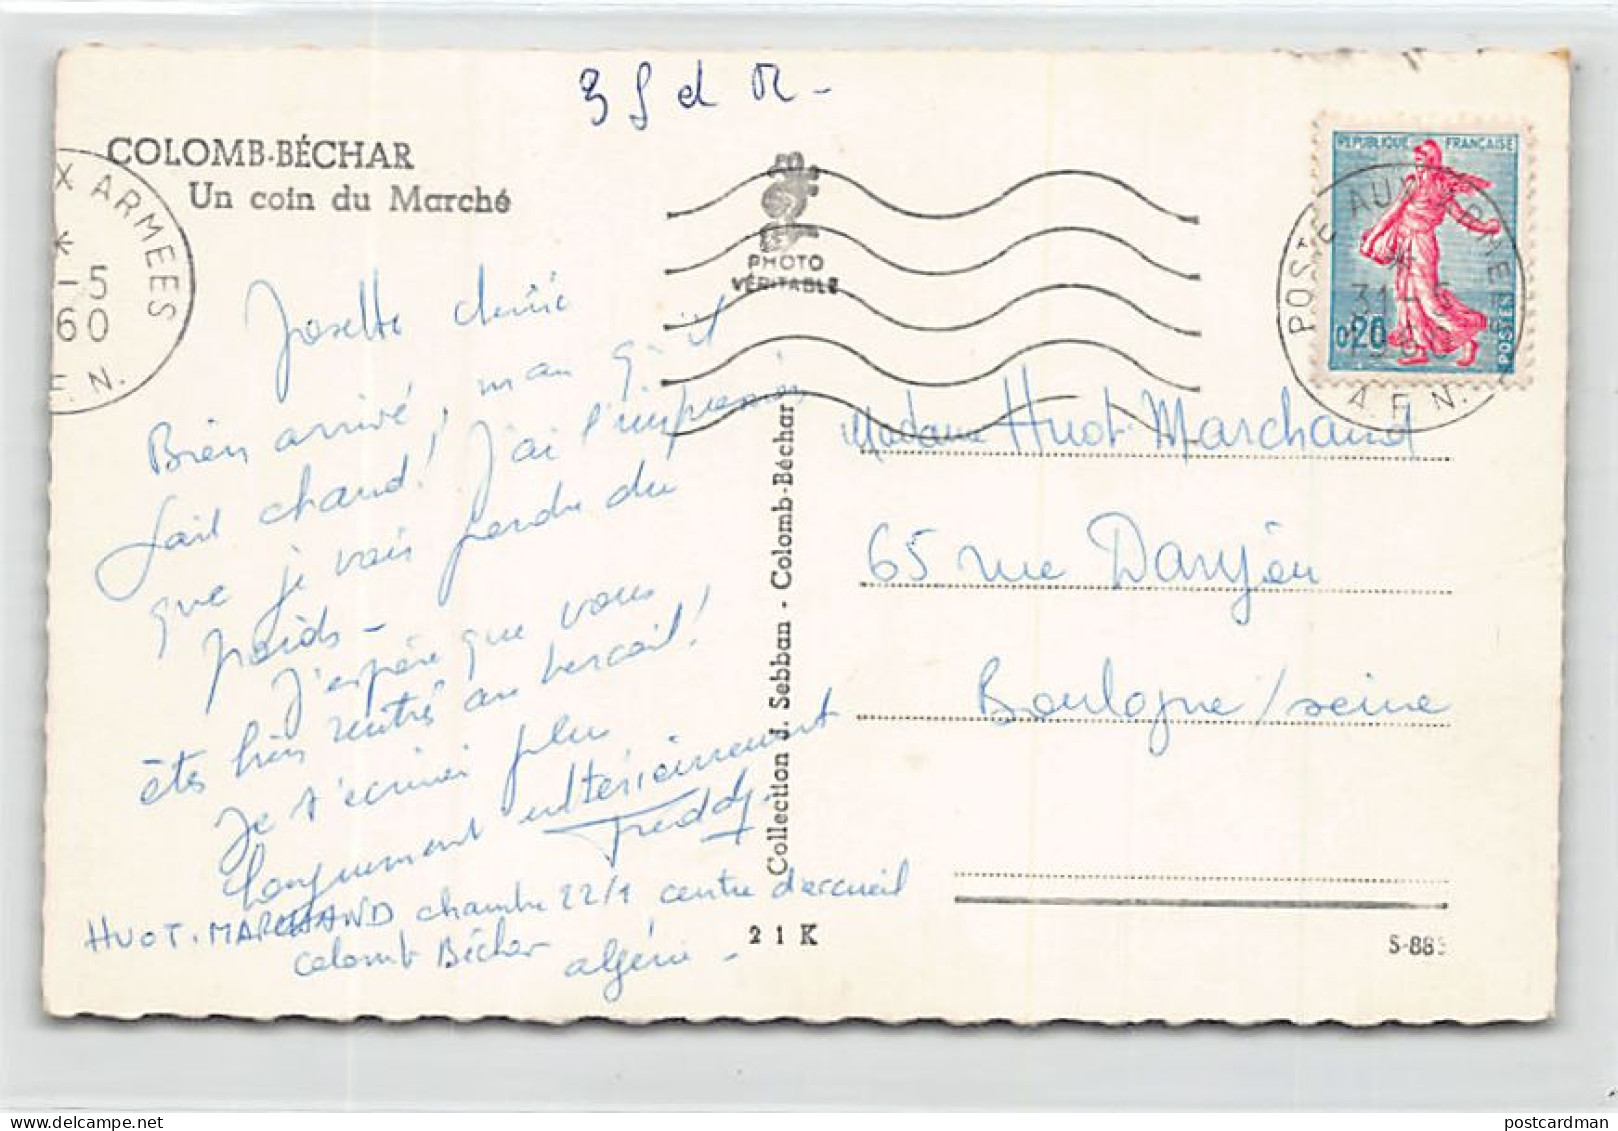 COLOMB-BÉCHAR
Un coin du Marché
X ARMEES
-5
60
F. N.
PHOTO
VÉRITABLE
REPUBLIQUE FRANÇAISE
0,20
POSTES
POSTE AUX ARMEES
31-5
1960
A. F. N.
Josette chérie
Bien arrivé, mais qu'il
fait chaud! J'ai l'impression
que je vais perdre du
poids-
J'espère que vous
êtes bien rentrés au bercail!
Je t'écrirai plus
longuement ultérieurement
Freddy.
HUOT-MARCHAND chambre 22/1 centre d'accueil
Colomb Béchar algérie -
Collection J. Sebban - Colomb-Béchar
21K
Madame Huot-Marchand
65 rue Danjou
Boulogne/seine
S-883
postcardman